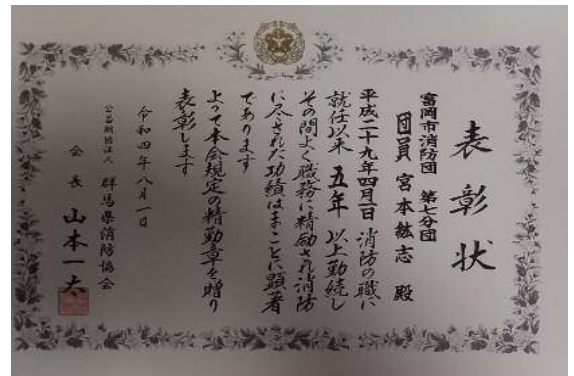 表彰状
富岡市消防団 第七分団
団員 宮本紘志 殿
平成二十九年四月一日 消防の職に
就任以来 五年 以上勤続し
その間よく職務に精励され消防
に尽された功績はまことに顕著
であります
よって本会規定の精勤章を贈り
表彰します
令和四年八月一日
公益財団法人 群馬県消防協会
会長 山本一太